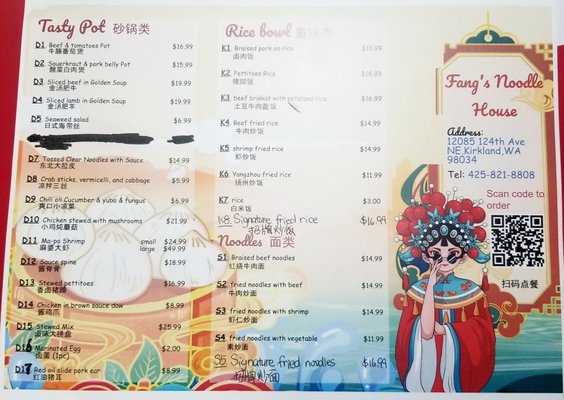 Tasty Pot 砂锅类
D1 Beef & tomatoes Pot $16.99
牛腩番茄煲
D2 Sauerkraut & pork belly Pot $15.99
酸菜白肉煲
D3 Sliced beef in Golden Soup $19.99
金汤肥牛
D4 Sliced lamb in Golden Soup $19.99
金汤肥羊
D5 Seaweed salad $6.99
日式海带丝
D7 Tossed Clear Noodles with Sauce $14.99
东北大拉皮
D8 Crab sticks, vermicelli, and cabbage $5.99
凉拌三丝
D9 Chili oil Cucumber & yuba & fungus $6.99
爽口小凉菜
D10 Chicken stewed with mushrooms $21.99
小鸡炖蘑菇
D11 Ma-po Shrimp small $24.99
麻婆大虾 large $49.99
D12 Sauce spine $18.99
酱脊骨
D13 Stewed pettitoes $16.99
香卤猪蹄
D14 Chicken in brown sauce claw $8.99
酱鸡爪
D15 Stewed Mix $25.99
卤味大拼盘
D16 Marinated Egg $2.00
卤蛋 (1pc)
D17 Red oil slide pork ear $8.99
红油猪耳
Rice bowl 盖饭类
K1 Braised pork on rice $15.99
卤肉饭
K2 Pettitoes Rice $16.99
猪脚饭
K3 beef brisket with potatoes rice $16.99
土豆牛肉盖饭
K4 Beef fried rice $14.99
牛肉炒饭
K5 shrimp fried rice $14.99
虾炒饭
K6 Yangzhou fried rice $11.99
扬州炒饭
K7 rice $3.00
白米饭
K8 Signature fried rice $16.99
招牌炒饭
Noodles 面类
S1 Braised beef noodles $14.99
红烧牛肉面
S2 fried noodles with beef $14.99
牛肉炒面
S3 fried noodles with shrimp $14.99
虾仁炒面
S4 fried noodles with vegetable $11.99
素炒面
S5 Signature fried noodles $16.99
招牌炒面
Fang's Noodle
House
Address:
12085 124th Ave
NE,Kirkland,WA
98034
Tel: 425-821-8808
Scan code to
order
扫码点餐